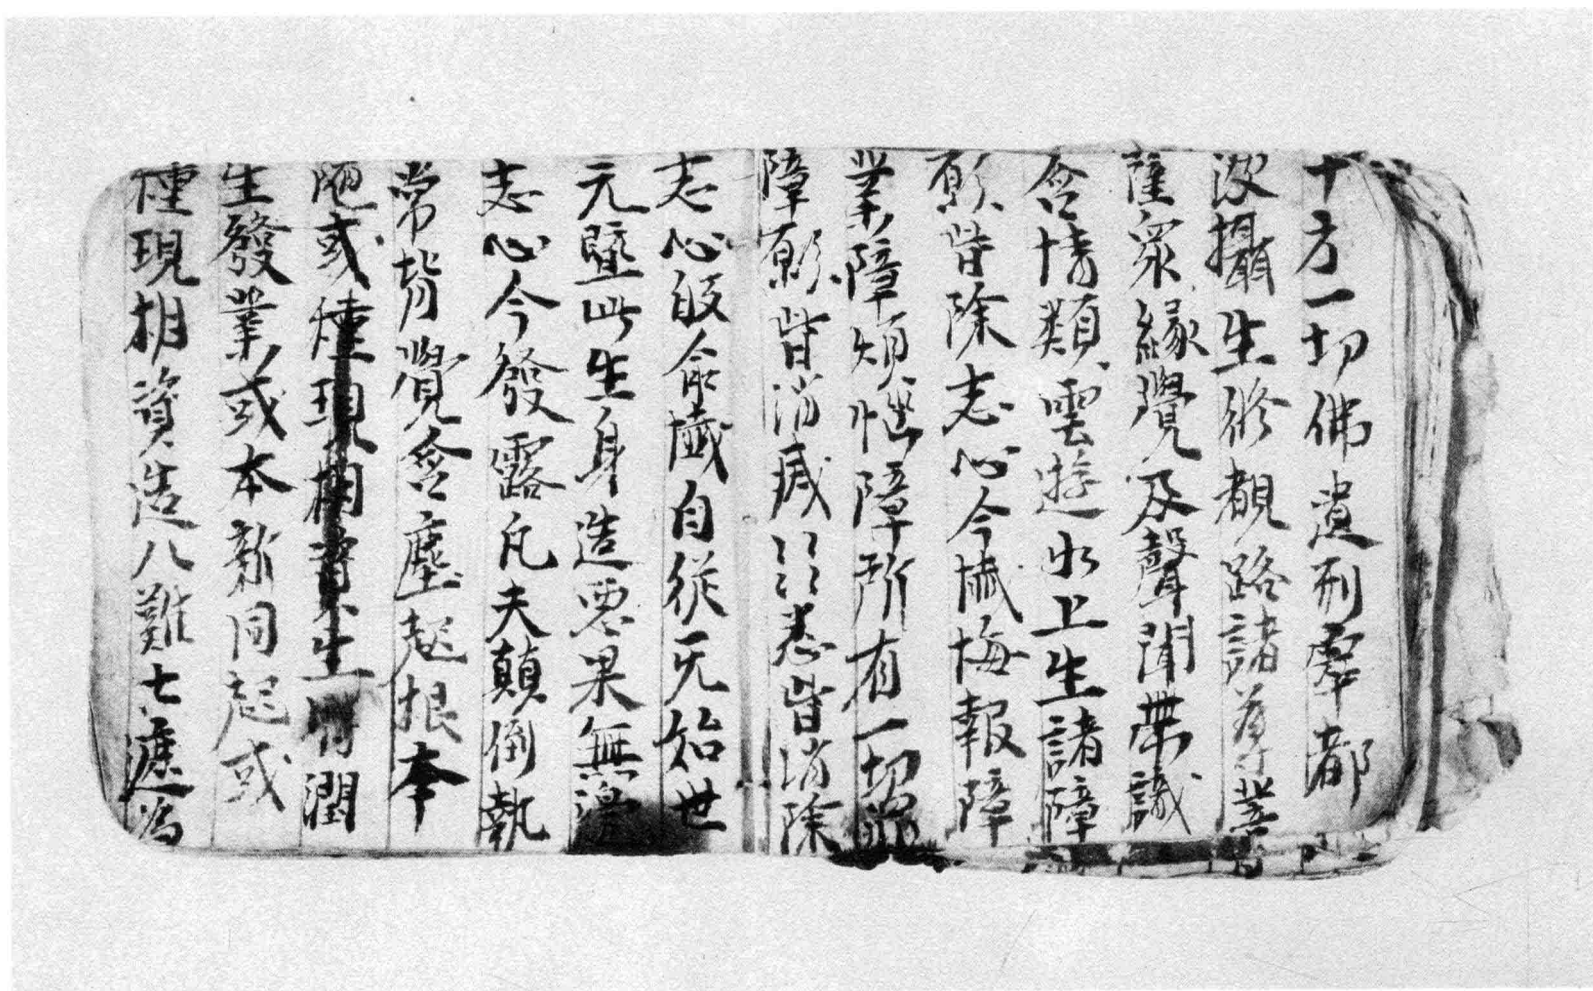 十方一切佛遺形窣都
波攝生終覩路諸尊菩
薩眾緣覺及聲聞帶識
含情類雲遊水上生諸障
願皆除志心今懺悔報障
業障煩惱障所有一切罪
障願皆消滅〻〻悉皆消除
志心皈命懺自從无始世
元暨此生身造惡果無邊
志心今發露凡夫顛倒執
常背覺合塵起根本
或種現相資生 潤
生發業或本新同起或
種現相資造八難七遮為